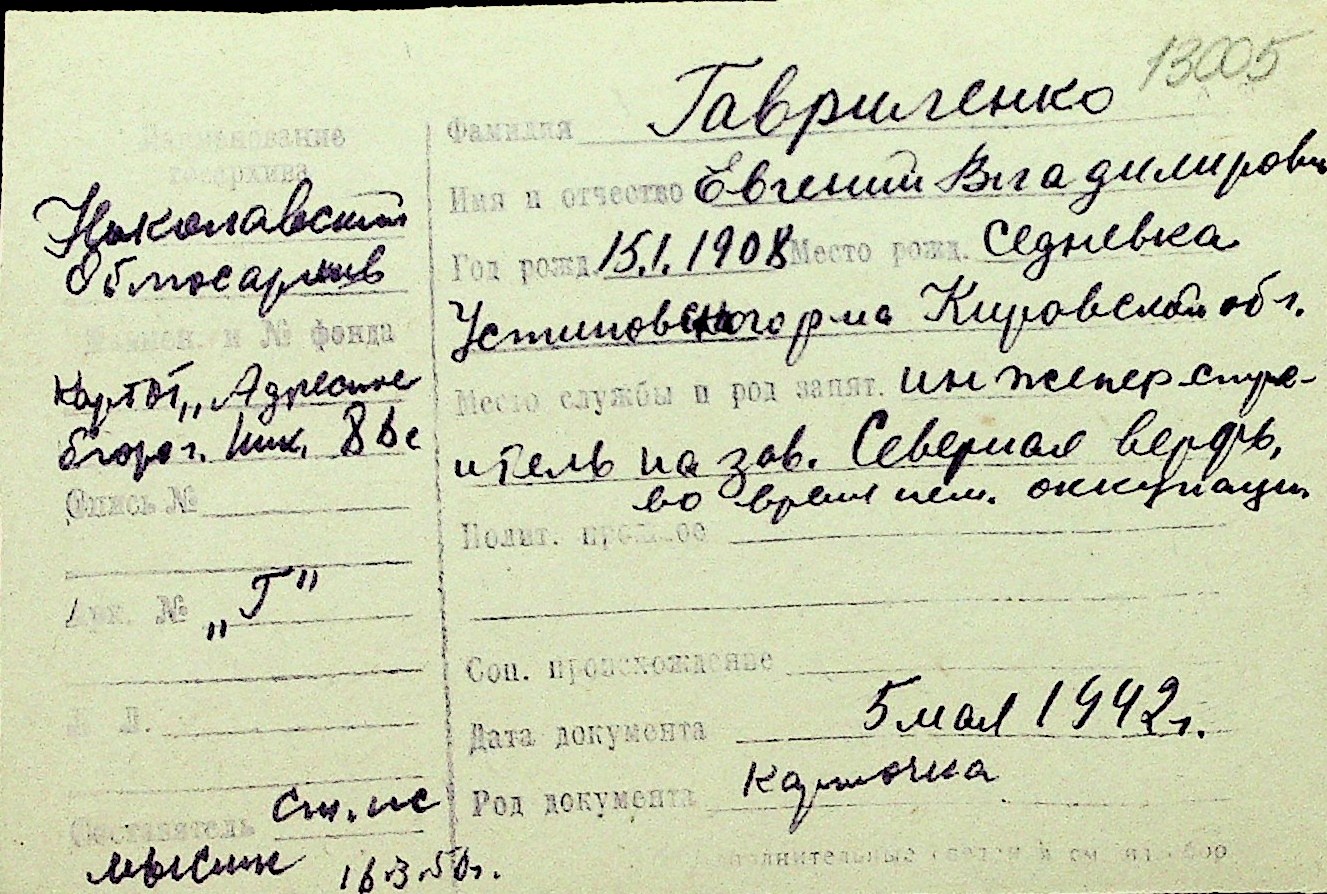 13005
Наименование
госархива
Николавский
Облгосархив
Наимен. и № фонда
Картот. „Адресное
бюро г. Ник.
Опись №
Арх. № „Г"
Л. Л.
Составитель ст. нс
16.3.50г.
Фамилия Гавриленко
Имя и отчество Евгений Владимирович
Год рожд. 15.1.1908 Место рожд. Седневка
Устиновского р-на Кировской обл.
Место службы и род занят. инженер стро-
итель на зав. Северная верфь,
во время нем. оккупации
Полит. прошлое
Соц. происхождение
Дата документа 5 мая 1942г.
Род документа карточка
Дополнительные